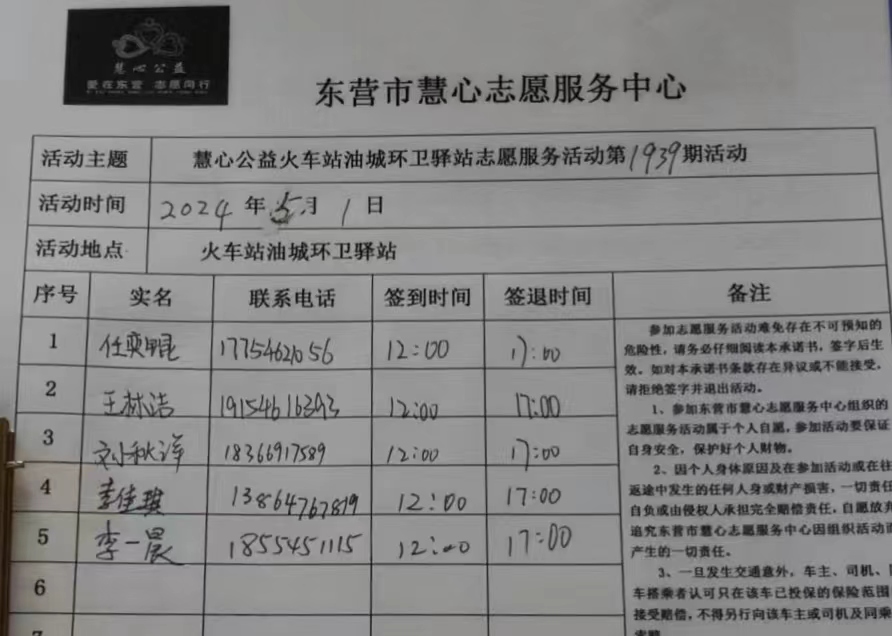 慧心公益
爱在东营 志愿同行
东营市慧心志愿服务中心
活动主题 慧心公益火车站油城环卫驿站志愿服务活动第1939期活动
活动时间 2024年5月1日
活动地点 火车站油城环卫驿站
序号 实名 联系电话 签到时间 签退时间 备注
1 任奕锟 17754621056 12:00 17:00
2 王林洁 19154616393 12:00 17:00
3 刘秋洋 18366917589 12:00 17:00
4 李佳骐 13864767819 12:00 17:00
5 李一晨 18554511115 12:00 17:00
6
7
参加志愿服务活动难免存在不可预知的
危险性，请务必仔细阅读本承诺书，签字后生
效。如对本承诺书条款存在异议或不能接受，
请拒绝签字并退出活动。
1、参加东营市慧心志愿服务中心组织的
志愿服务活动属于个人自愿，参加活动要保证
自身安全，保护好个人财物。
2、因个人身体原因及在参加活动或在往
返途中发生的任何人身或财产损害，一切责任
自负或由侵权人承担完全赔偿责任，自愿放弃
追究东营市慧心志愿服务中心因组织活动而
产生的一切责任。
3、一旦发生交通意外，车主、司机、
车搭乘者认可只在该车已投保的保险范围
接受赔偿，不得另行向该车主或司机及同乘